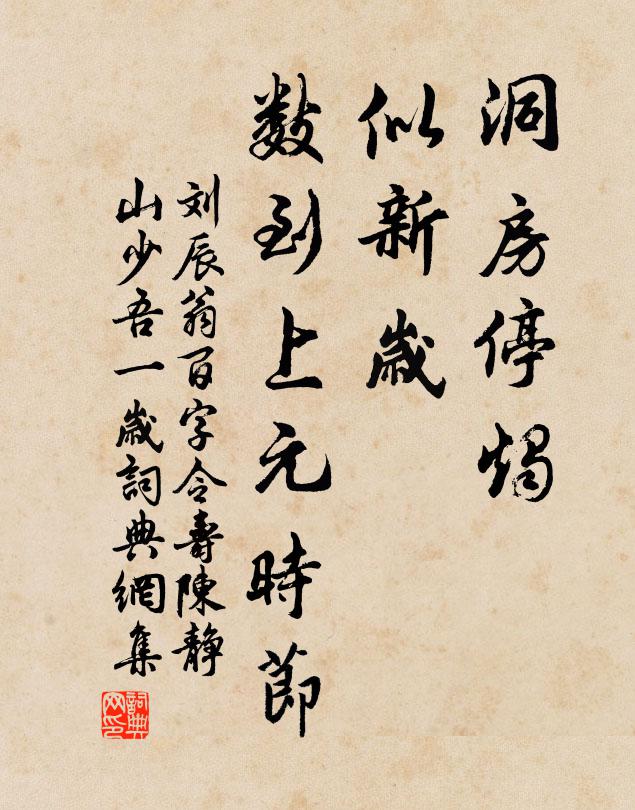 洞房停燭
似新歲
数到上元時節
刘辰翁百字令壽陳静
山少吾一歲詞典網集
詞典网印